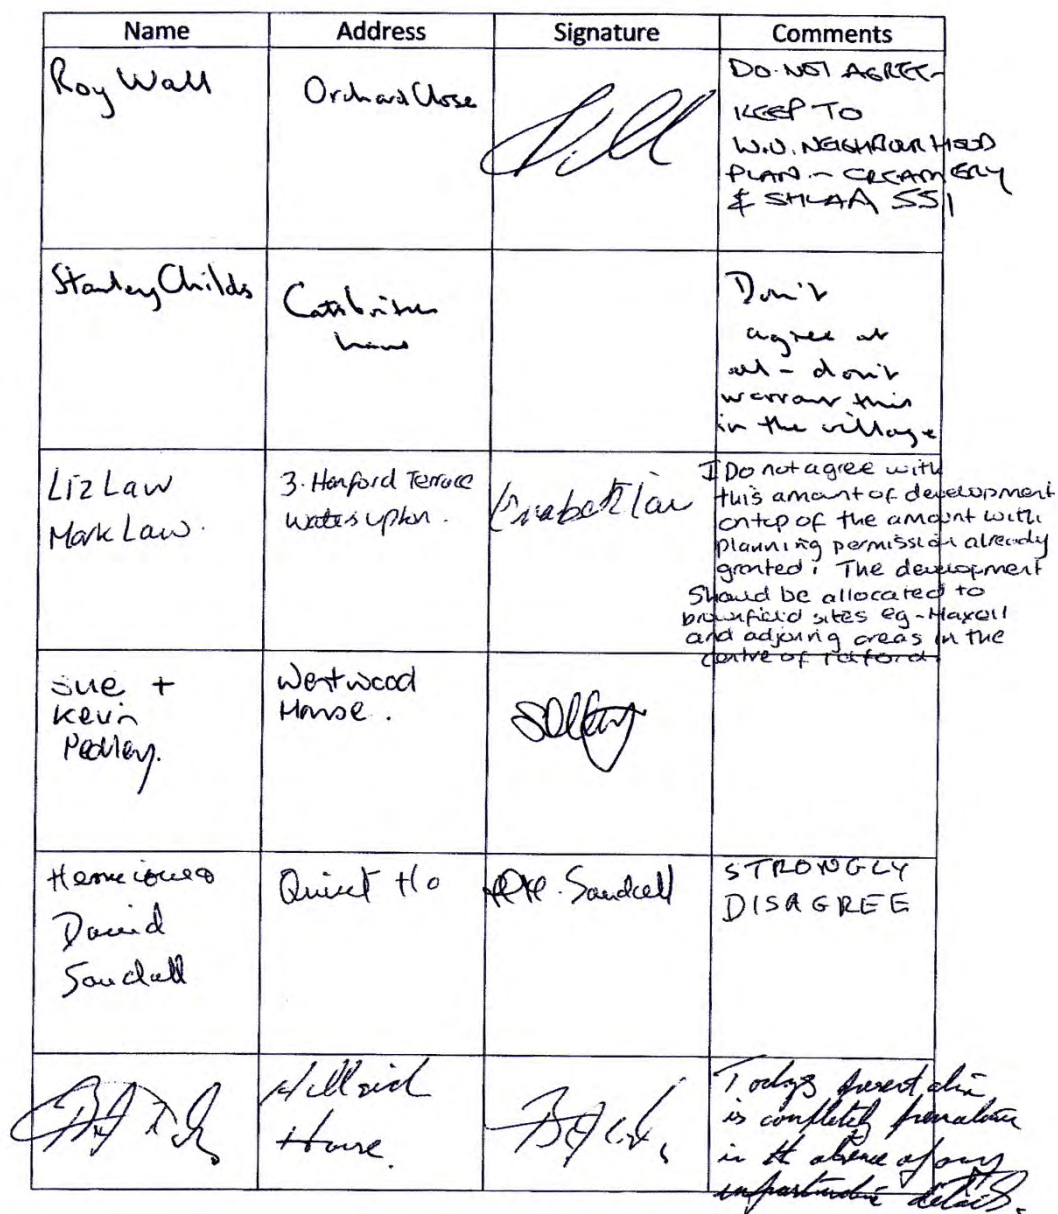 Name Address Signature Comments
Roy Wall
Orchard Close
DO NOT AGREE -
KEEP TO
W.U. NEIGHBOURHOOD
PLAN - CREAMERY
& SHLAA 551
Stanley Childs
Don't
agree at
all - don't
warrant this
in the village
Liz Law
Mark Law.
3. Harford Terrace
Waters Upton.
Elizabeth Law
I Do not agree with
this amount of development
on top of the amount with
planning permission already
granted. The development
should be allocated to
brownfield sites eg - Maxell
and adjoining areas in the
centre of Telford.
Sue +
Kevin
Pedley.
Westwood
House.
David
Sandall
Quiet Ho
Sandall
STRONGLY
DISAGREE
House.
Todays presentation
is completely premature
in the absence of any
infrastructure details.